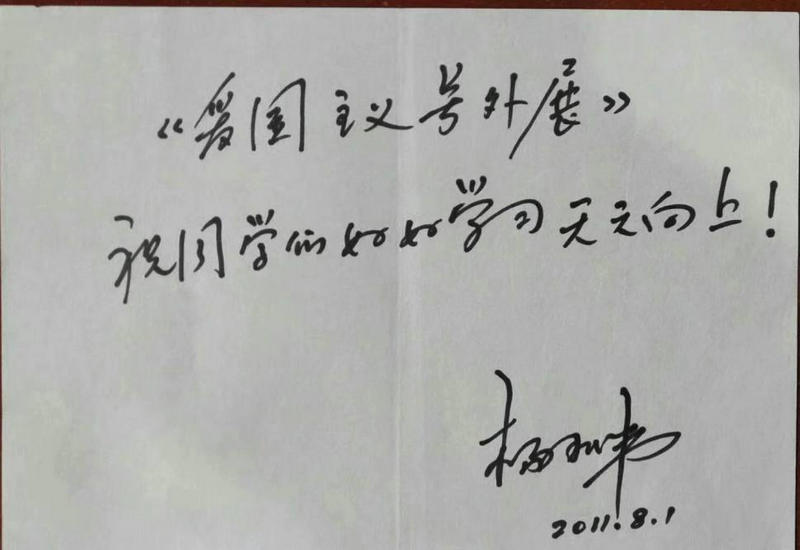 《爱国主义号外展》
祝同学们好好学习天天向上！
杨利伟
2011.8.1